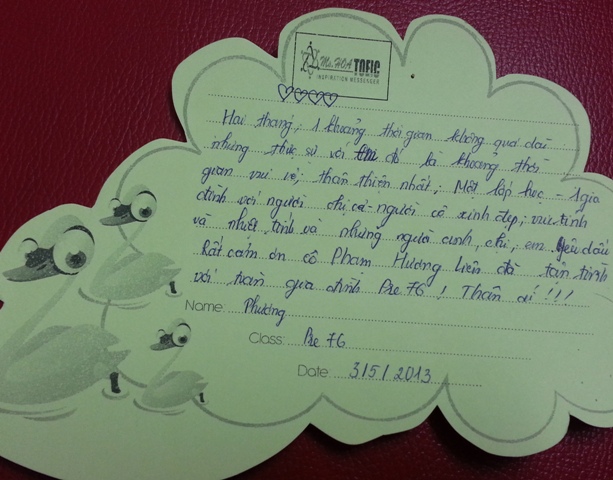 Ms. HOA TOEIC
INSPIRATION MESSENGER
Hai tháng, 1 khoảng thời gian không quá dài
nhưng thực sự với đó là khoảng thời
gian vui vẻ, thân thiện nhất, Một lớp học - 1 gia
đình với người chị, cô - người cô xinh đẹp, vui tính
và nhiệt tình và những người anh, chị, em yêu dấu
Rất cám ơn cô Phạm Hương Liên đã tận tình
với toàn gia đình Pre 76! Thân ái!!!
Name: Phương
Class: Pre 76
Date 3/5/2013